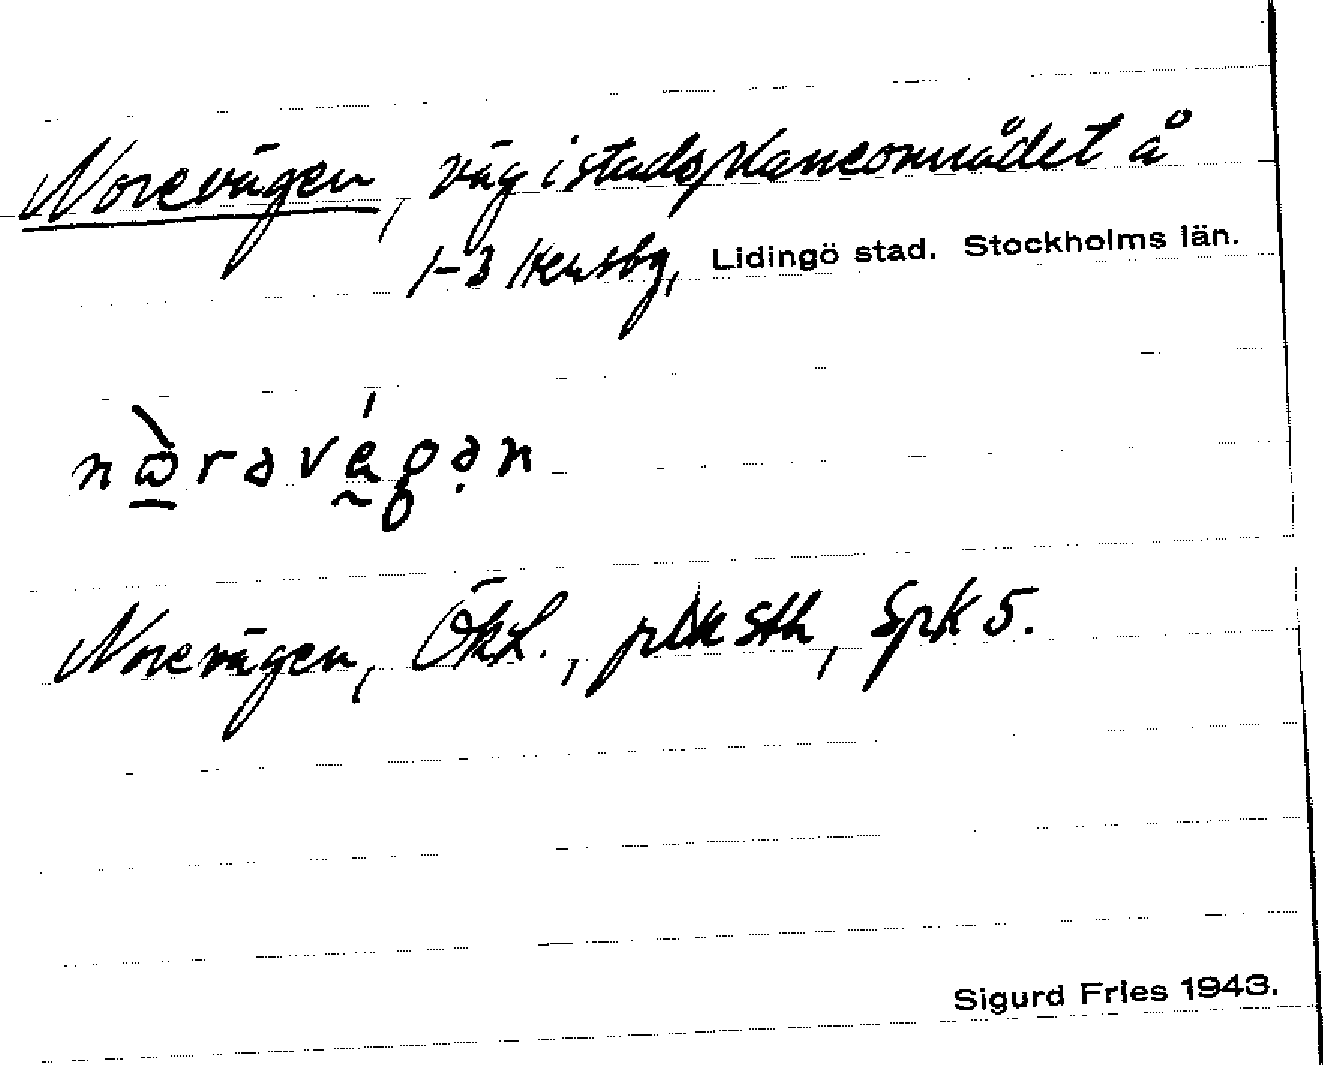 Norevägen, väg i stadsplaneområdet å
1-3 Hersby, Lidingö stad. Stockholms län.
nὼ̱rəvä́gə̣n
Norevägen, ÖkL., plbk Sth, Spk 5.
Sigurd Fries 1943.